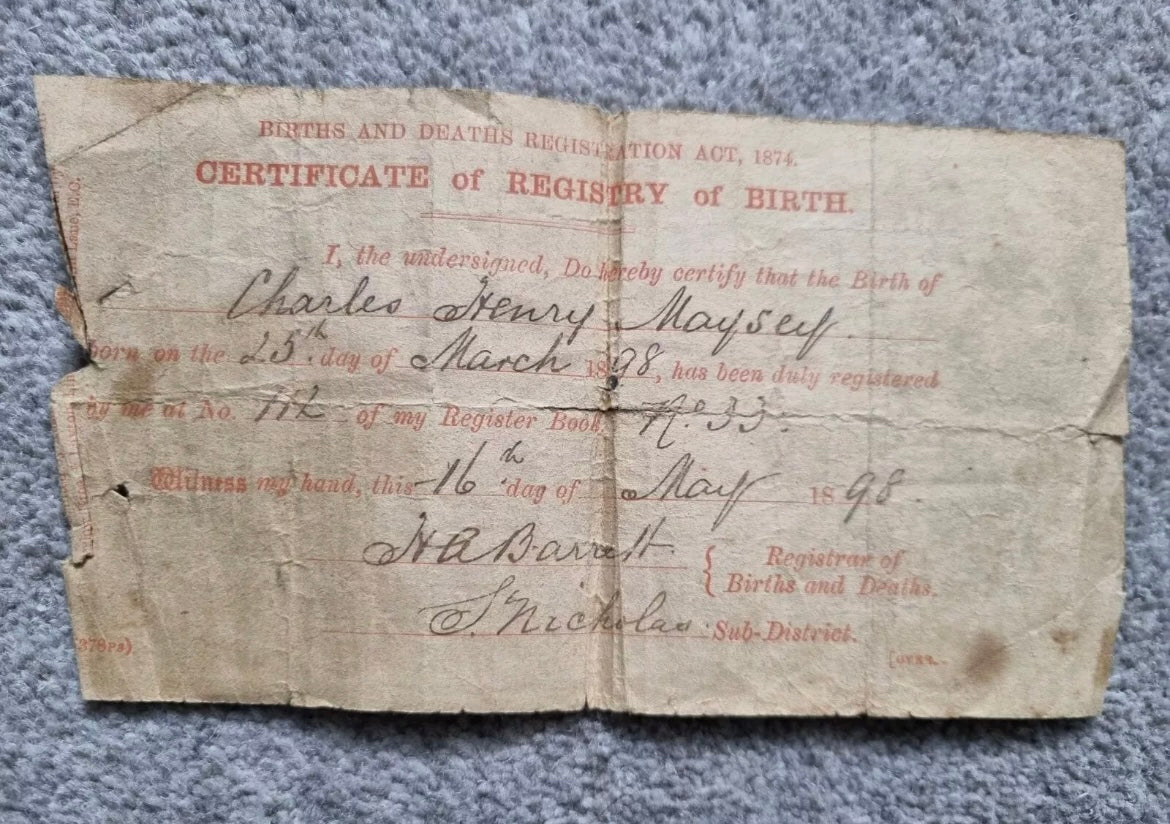 BIRTHS AND DEATHS REGISTRATION ACT, 1874.
CERTIFICATE of REGISTRY of BIRTH.
I, the undersigned, Do hereby certify that the Birth of
Charles Henry Maysey
born on the 25th day of March 1898, has been duly registered
by me at No. 112 of my Register Book, No. 33.
Witness my hand, this 16th day of May 1898.
H A Barrett Registrar of
Births and Deaths.
St Nicholas Sub-District.
378PS)
[OVER.
Lane, E.C.